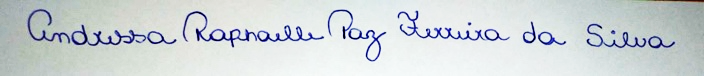 Andressa Raphaelle Paz Ferreira da Silva